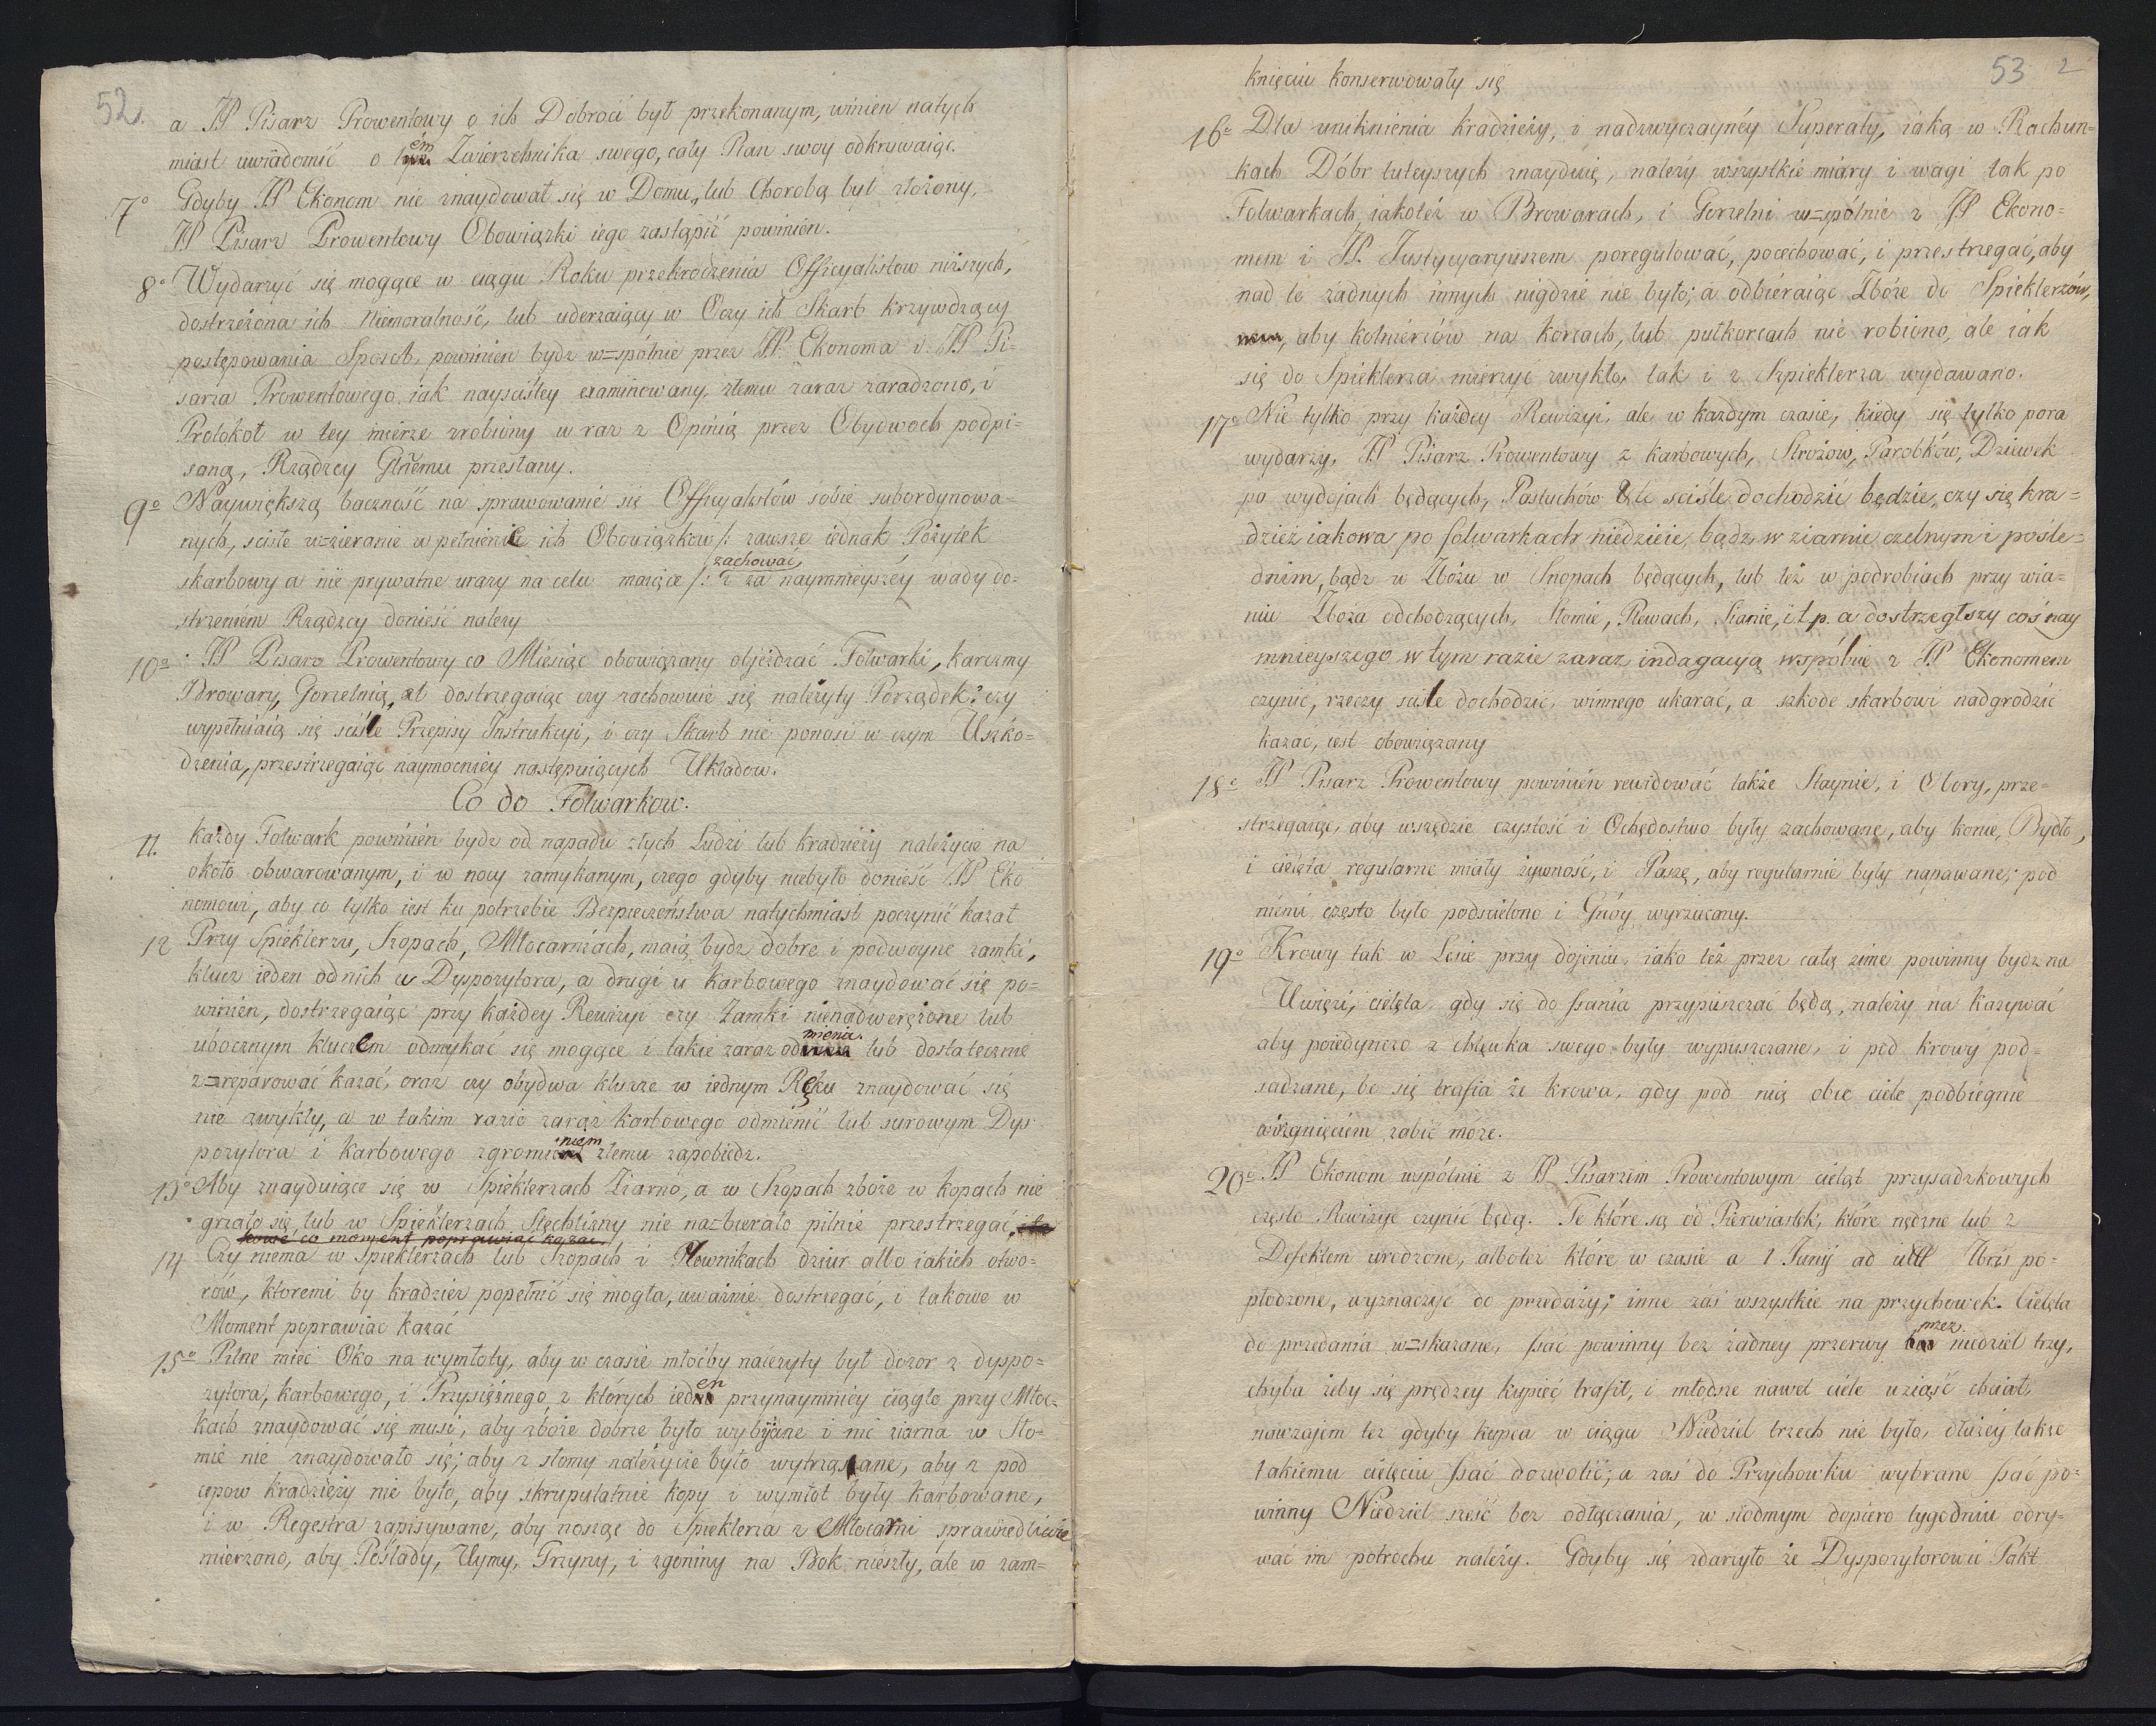 52.
a JP Pisarz Prowentowy o ich Dobroci był przekonanym, winien natych
miast uwiadomić o tem Zwierzchnika swego, cały Plan swoy odkrywaiąc.
7o Gdyby JP Ekonom nie znaydował się w Domu, lub Chorobą był złożony,
JP Pisarz Prowentowy Obowiązki iego zastąpić powinien.
8o Wydarzyć się mogące w ciągu Roku przekroczenia Officyalistow niższych,
dostrzeżona ich Niemoralność, lub uderzaiący w Oczy ich Skarb krzywdzący
postępowania Sposob, powinien bydz w=spólnie przez JP. Ekonoma i JP Pi=
sarza Prowentowego iak nayściśley examinowany, złemu zaraz zaradzono, i
Protokoł w tey mierze zrobiony wraz z Opinią przez Obydwoch podpi=
saną, Rządzcy Głnemu przesłany.
9o Naywiększą baczność na sprawowanie się Officyalistów sobie subordynowa=
nych, scisłe w=zieranie w pełnienie ich Obowiązkow /: zawsze iednak Pożytek
skarbowy a nie prywatne urazy na celu maiące :/ zachować, i za naymnieyszéy wady do=
strzeniem Rządzcy donieść należy
10o JP Pisarz Prowentowy co Miesiąc obowiązany objeżdzać Folwarki, karczmy
Browary, Gorzelnią, et dostrzegaiąc czy zachowuie się należyty Porządek? czy
wypełniaią się ściśle Przepisy Instrukcyi, i czy Skarb nie ponosi w czym Uszko=
dzenia, przestrzegaiąc naymocniey następuiących Układow.
Co do Folwarkow.
11. każdy Folwark powinien bydz od napadu złych Ludzi lub kradzieży należycie na
około obwarowanym, i w nocy zamykanym, czego gdyby niebyło donieść JP Eko
nomowi, aby co tylko iest ku potrzebie Bezpieczeństwa natychmiast poczynić kazał
12 Przy Spieklerzu, Szopach, Młocarniach, maią bydz dobre i podwoyne zamki,
klucz ieden od nich u Dyspozytora, a drugi u Karbowego znaydować się po=
winien, dostrzegaiąc przy każdey Rewizyi czy Zamki nienadwerężone lub
ubocznym kluczem odmykać się mogące i takie zaraz odmienia. lub dostatecznie
z=reparować kazać, oraz czy obydwa klucze w iednym Ręku znaydować się
nie zwykły, a w takim razie zaraz karbowego odmienić lub surowym Dys
pozytora i Karbowego zgromieniem złemu zapobiedz.
13o Aby znayduiące się w Spieklerzach Ziarno, a w Szopach zboże w kopach nie
grzało się, lub w Spieklerzach Stęchlizny nie nazbierało pilnie przestrzegać
kowe co moment poprawiać kazać.
14 Czy niema w Spieklerzach lub Szopach i Plownikach dziur albo iakich otwo=
rów, ktoremi by kradzież popełnić się mogła, uważnie dostrzegać, i takowe w
Moment poprawiać kazać
15o Pilne mieć Oko na wymłoty, aby w czasie młoćby należyty był dozor z dyspo=
zytora, karbowego, i Przysiężnego z których ieden przynaymniey ciągle przy Młoc=
kach znaydować się musi, aby zboże dobrze było wybijane i nic ziarna w Sło=
mie nie znaydowało się; aby z słomy należycie było wytrząsane, aby z pod
cepow kradzieży nie było, aby skrupulatnie kopy i wymłot były karbowane,
i w Regestra zapisywane, aby nosząc do Spieklerza z Młocarni sprawiedliwie
mierzono, aby Poślady, Uymy, Trzyny, i zgoniny na Bok nieszły, ale w zam=
53 2
knięciu konserwowały się
16o Dla uniknienia kradzieży, i nadzwyczaynéy Superaty, iaką w Rachun=
kach Dóbr tuteyszych znayduię, należy wszystkie miary i wagi tak po
Folwarkach iakoteż w Browarach, i Gorzelni w=spólnie z JP Ekono=
mem i JP. Justycyaryuszem poregulować, pocechować, i przestrzegać, aby
nad to żadnych innych nigdzie nie było; a odbiéraiąc Zboże do Spieklerzów,
aby kołnierzów na korcach, lub pułkorcach nie robiono, ale iak
się do Spieklerza mierzyć zwykło, tak i z Szpieklerza wydawano.
17o Nie tylko przy każdey Rewizyi, ale w każdym czasie, kiedy się tylko pora
wydarzy, JP Pisarz Prowentowy z karbowych, Stróżow, Parobków, Dziewek
po wydojach będących, Pastuchów &c ściśle dochodzić będzie, czy się kra=
dzież iakowa po folwarkach niedzieie, bądz w ziarnie czelnym i pośle=
dnim, bądz w Zbożu w Snopach będących, lub też w podrobiach przy wia=
niu Zboża odchodzących, Słomie, Plewach, Sianie, i.t.p. a dostrzegłszy coś nay
mnieyszego w tym razie zaraz indagacyą wspólnie z JP Ekonomem
czynić, rzeczy ściśle dochodzić, winnego ukarać, a szkode skarbowi nadgrodzić
kazać, iest obowiązany
18o JP Pisarz Prowentowy powinién rewidować także Staynie, i Obory, prze=
strzegaiąc, aby wszędzie czystość i Ochędostwo były zachowane, aby konie, Bydło,
i cielęta regularne miały żywność, i Paszę, aby regularnie były napawane, pod
niémi często było podścielono i Gnóy wyrzucany.
19o Krowy tak w Lesie przy dojeniu, iako też przez całą zime powinny bydz na
Uwięzi, cielęta gdy się do ssania przypuszczać będą, należy nakazywać
aby poiedynczo z chlewka swego były wypuszczane, i pod krowy pod=
sadzane, bo się trafia że krowa, gdy pod nią obce ciele podbiegnie
wirzgnięciem zabić może.
20o JP Ekonom wspólnie z JP Pisarzem Prowentowym cieląt przysadzkowych
często Rewizyje czynić będą. Te które są od Pierwiastek, które nędzne lub z
Defektem urodzone, alboteż które w czasie a 1 Junij ad Xbris po=
płodzone, wyznaczyć do przedaży; inne zaś wszystkie na przychowek. Cielęta
do przedania w=skazane, ssać powinny bez żadney przerwy przez niedziel trzy,
chyba żeby się prędzey kupiec trafił, i młodsze nawet ciele uziąść chciał,
nawzajem też gdyby kupca w ciągu Niedziel trzech nie było, dłużéy także
takiemu cielęciu ssać dozwolić; a zaś do Przychowku wybrane ssać po=
winny Niedziel sześć bez odłączania, w siodmym dopiero tygodniu odry=
wać im potrochu należy. Gdyby się zdarzyło że Dyspozytorowi Pakt